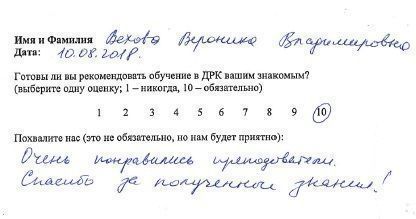 Имя и Фамилия Вехова Вероника Владимировна
Дата: 10.08.2018.
Готовы ли вы рекомендовать обучение в ДРК вашим знакомым?
(выберите одну оценку; 1 – никогда, 10 – обязательно)
1 2 3 4 5 6 7 8 9 10
Похвалите нас (это не обязательно, но нам будет приятно):
Очень понравились преподователи.
Спасибо за полученные знания!